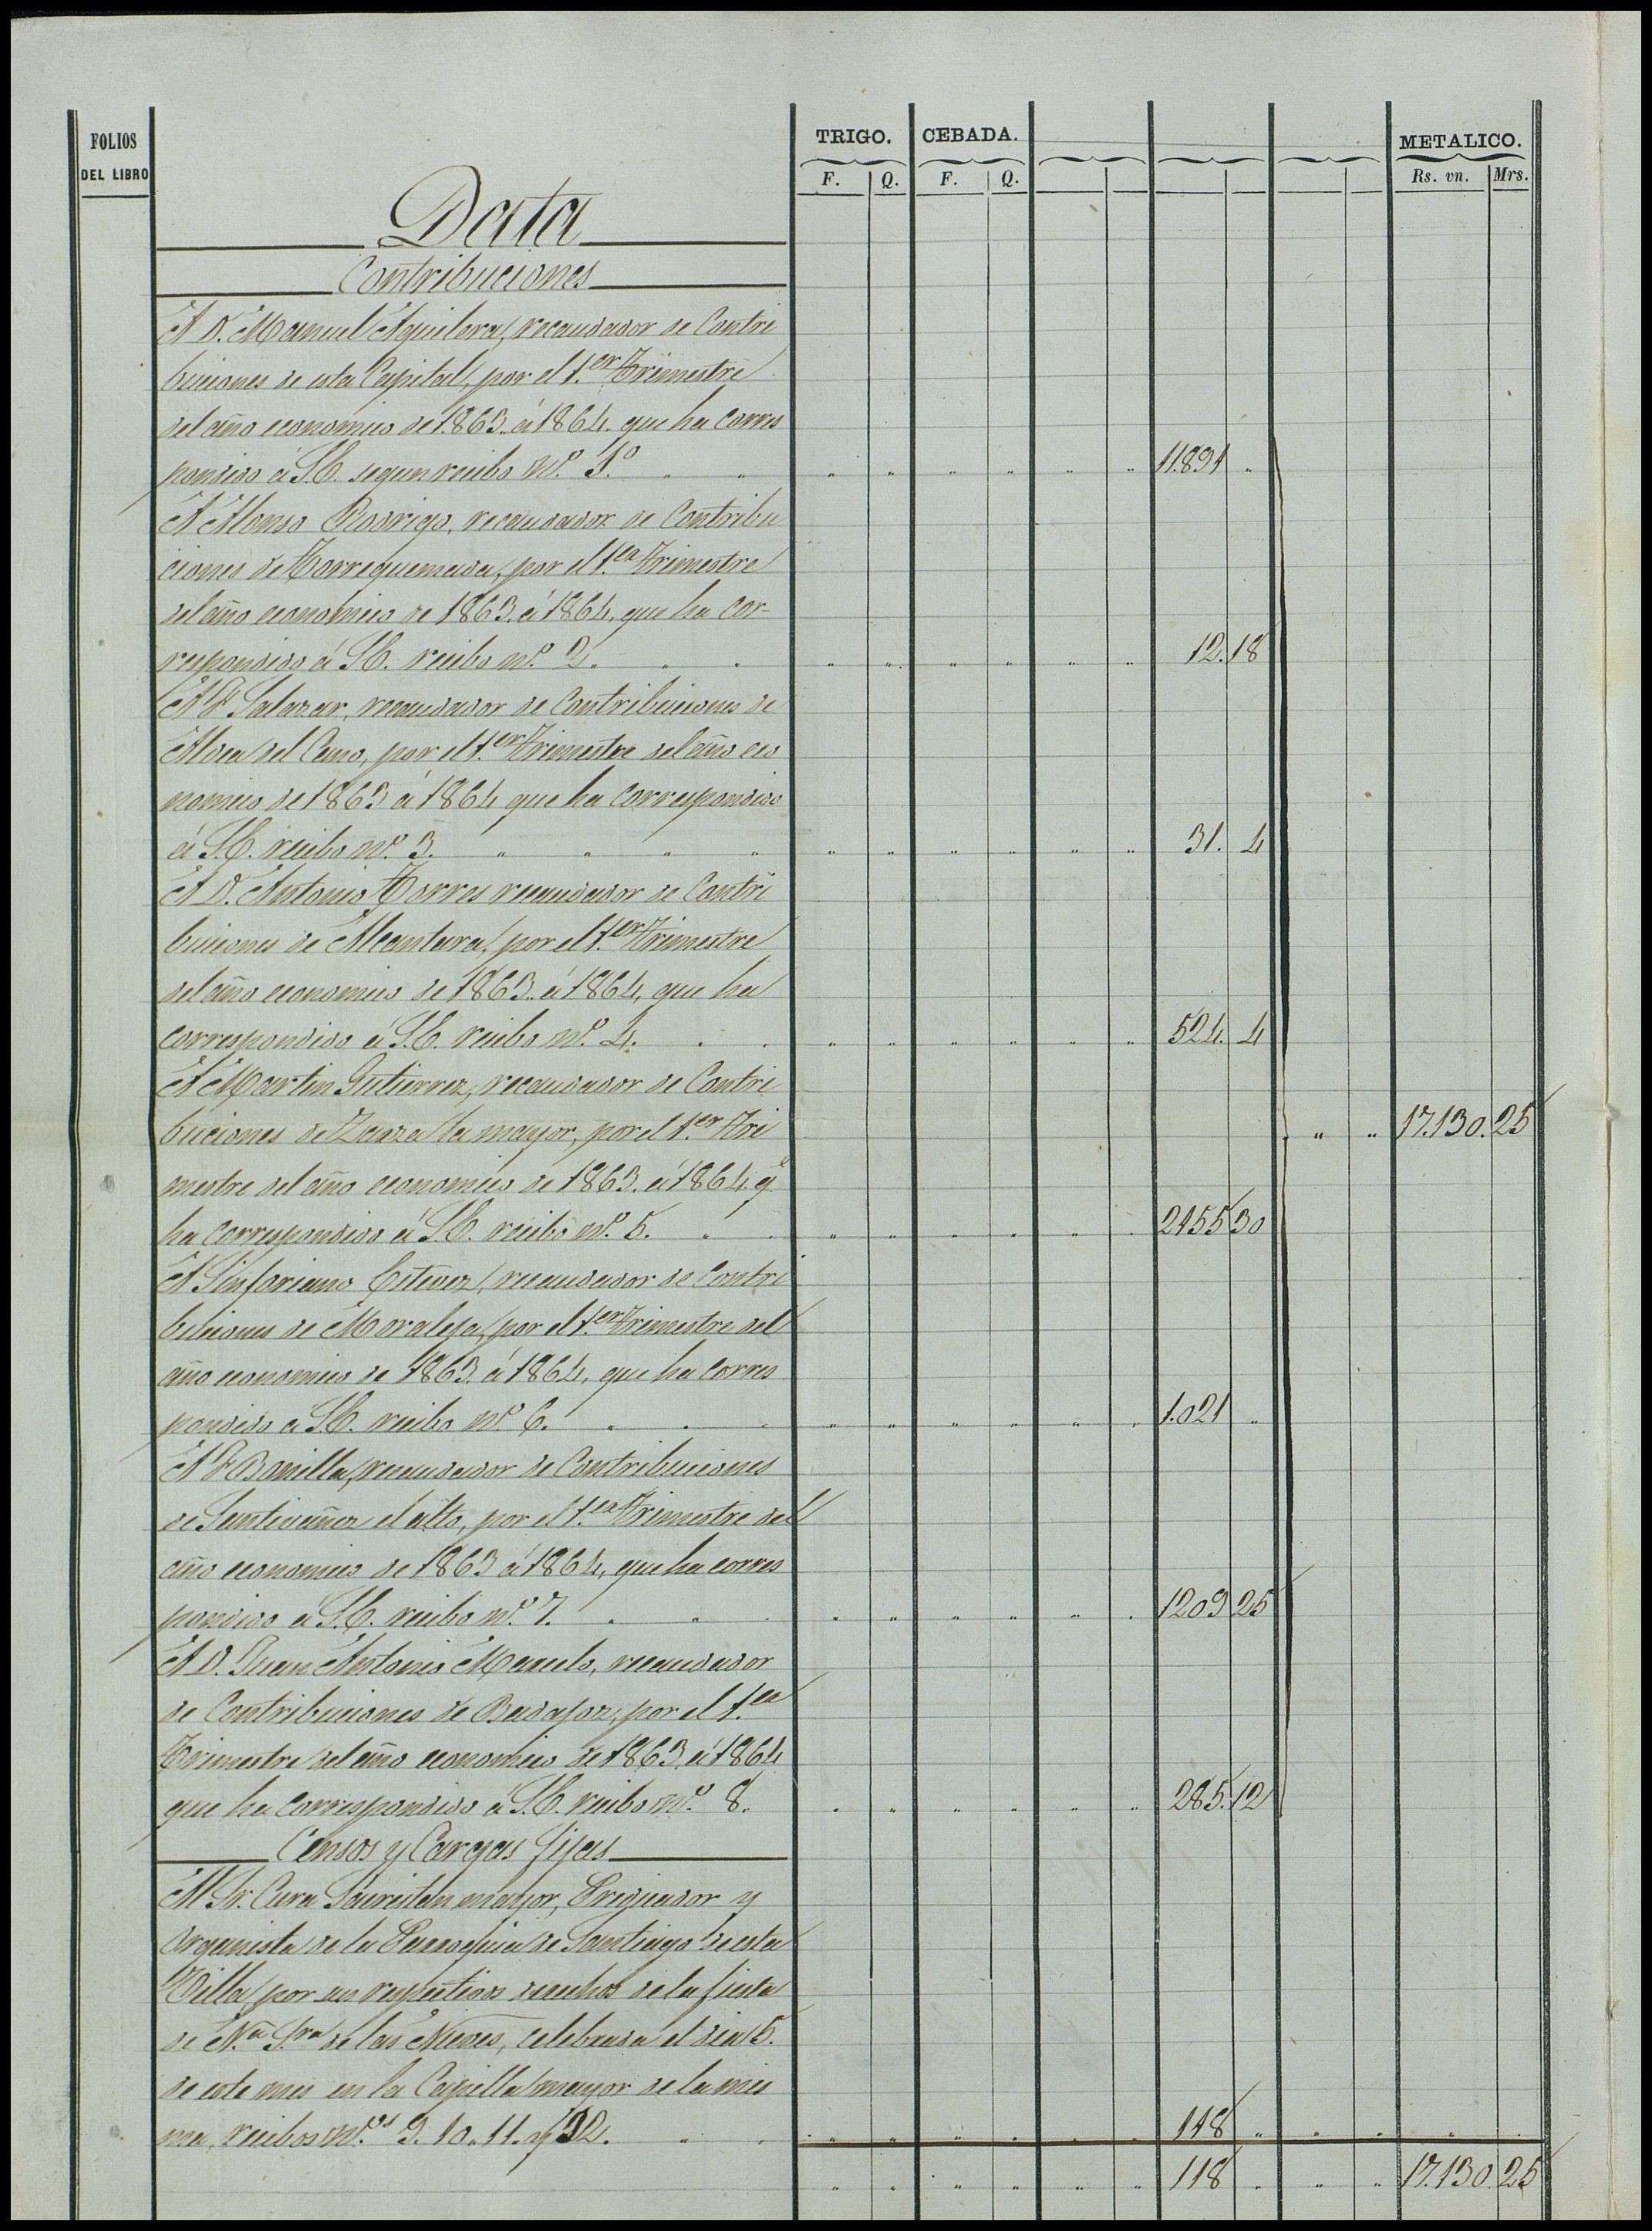 FOLIOS
DEL LIBRO
TRIGO. CEBADA. METALICO.
F. Q. F. Q. Rs. vn. Mrs.
Data
Contribuciones
A D. Manuel Aguilera, recaudador de Contri
buciones de esta Capital, por el 1.er Trimestre
del año economico de 1863. á 1864. que ha corres
pondido á S.E. segun recibo n.o 1.o " " " " " " " " 11.891 "
A Alonso Rodrigo, recaudador de Contribu
ciones de Torrequemada, por el 1.er Trimestre
del año economico de 1863. á 1864, que ha cor-
respondido á S.E. recibo n.o 2. " " " " " " " " 12. 18
A F. Salazar, recaudador de Contribuciones de
Aldea del Cano, por el 1.er Trimestre del año eco
nomico de 1863 á 1864 que ha correspondido
á S.E. recibo n.o 3. " " " " " " " " " " 31. 4
A D. Antonio Torres recaudador de Contri
buciones de Alcantara, por el 1.er Trimestre
del año economico de 1863. á 1864, que ha
correspondido á S.E. recibo n.o 4. " " " " " " " " 524. 4
A Martin Gutierrez, recaudador de Contri
buciones de Zarza la mayor, por el 1.er Tri " " 17.130. 25
mestre del año economico de 1863. á 1864. q.e
ha correspondido á S.E. recibo n.o 5. " " " " " " " " 2155 30
A Sinforiano Estevez, recaudador de Contri
buciones de Moraleja, por el 1.er Trimestre del
año economico de 1863 á 1864, que ha corres
pondido a S.E. recibo n.o 6. " " " " " " " " " 1.021 "
A F. Bonilla, recaudador de Contribuciones
de Santivañez el alto, por el 1.er Trimestre del
año economico de 1863 á 1864, que ha corres
pondido á S.E. recibo n.o 7. " " " " " " " " " 1209 25
A D. Juan Antonio recaudador
de Contribuciones de Badajoz, por el 1.er
Trimestre del año economico de 1863, á 1864
que ha correspondido á S.E. recibo n.o 8. " " " " " " 285. 12
Censos y Cargas fijas
Al Sr. Cura Sacristan mayor, y
organista de la Parroquia de Santiago de esta
Villa, por sus respectivos derechos de la fiesta
de N.a S.ra de las Nieves, celebrada el dia 5.
de este mes en la Capilla mayor de la mis
ma, recibos n.os 9. 10. 11. y 12. " " " " " " " " 118 " " " " "
" " " " " " 118 " " " 17.130. 25